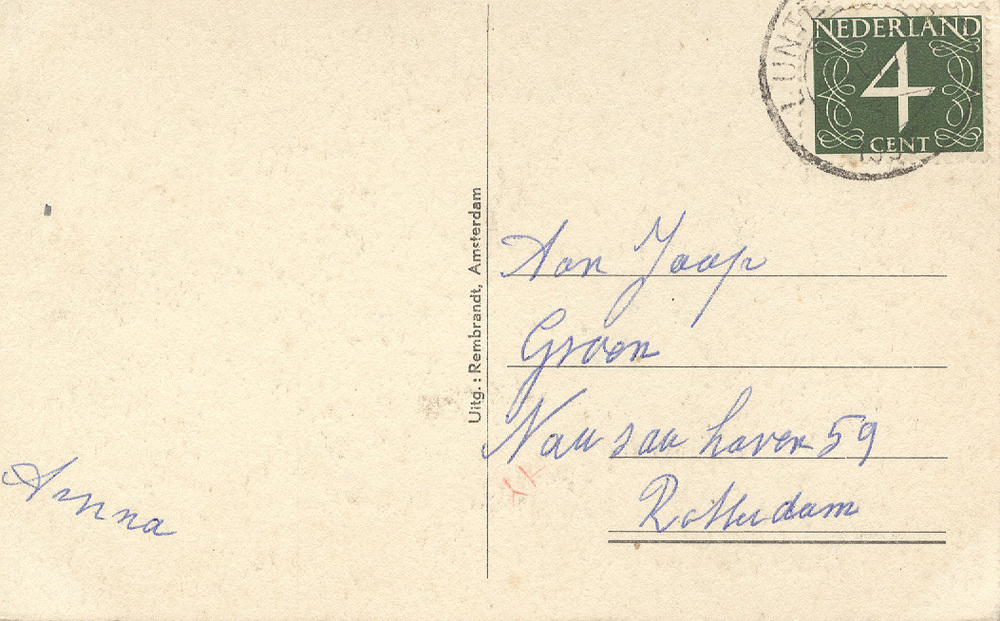 NEDERLAND
4
CENT
Uitg.: Rembrandt, Amsterdam
Aan Jaap
Groen
Nassau haven 59
Rotterdam
Anna